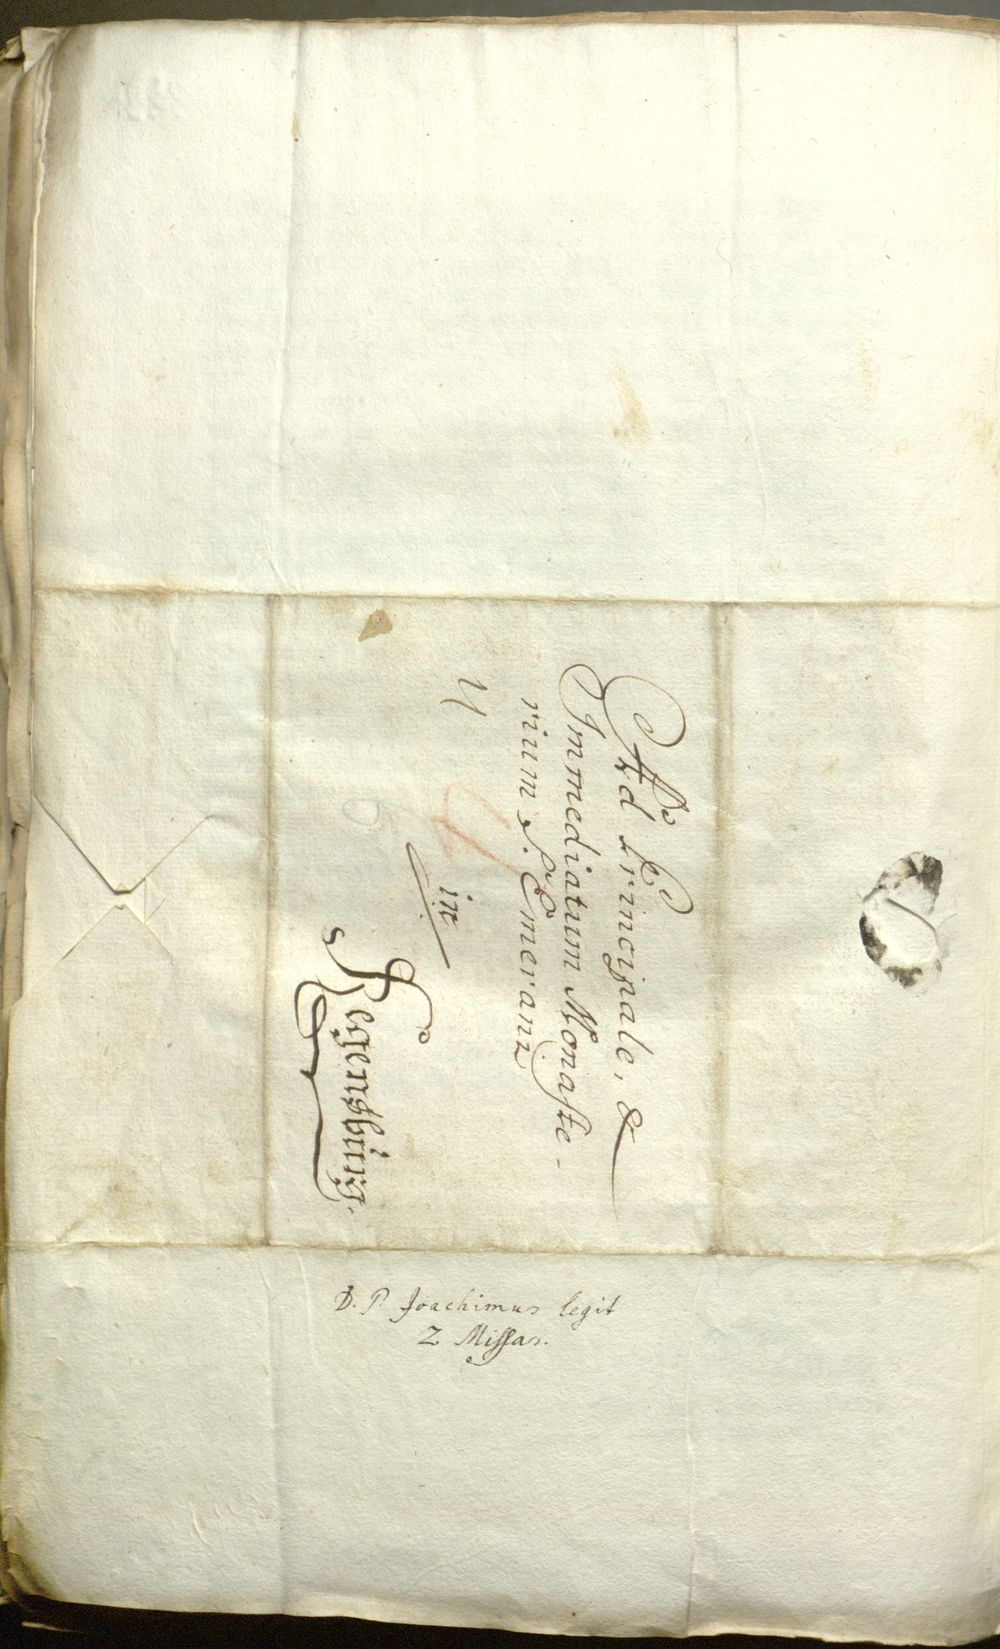 Ad Principale, &
Immediatum Monaste-
rium S. Emerami
in
Regensburg.
D. P. Joachimus legit
2 Missas.